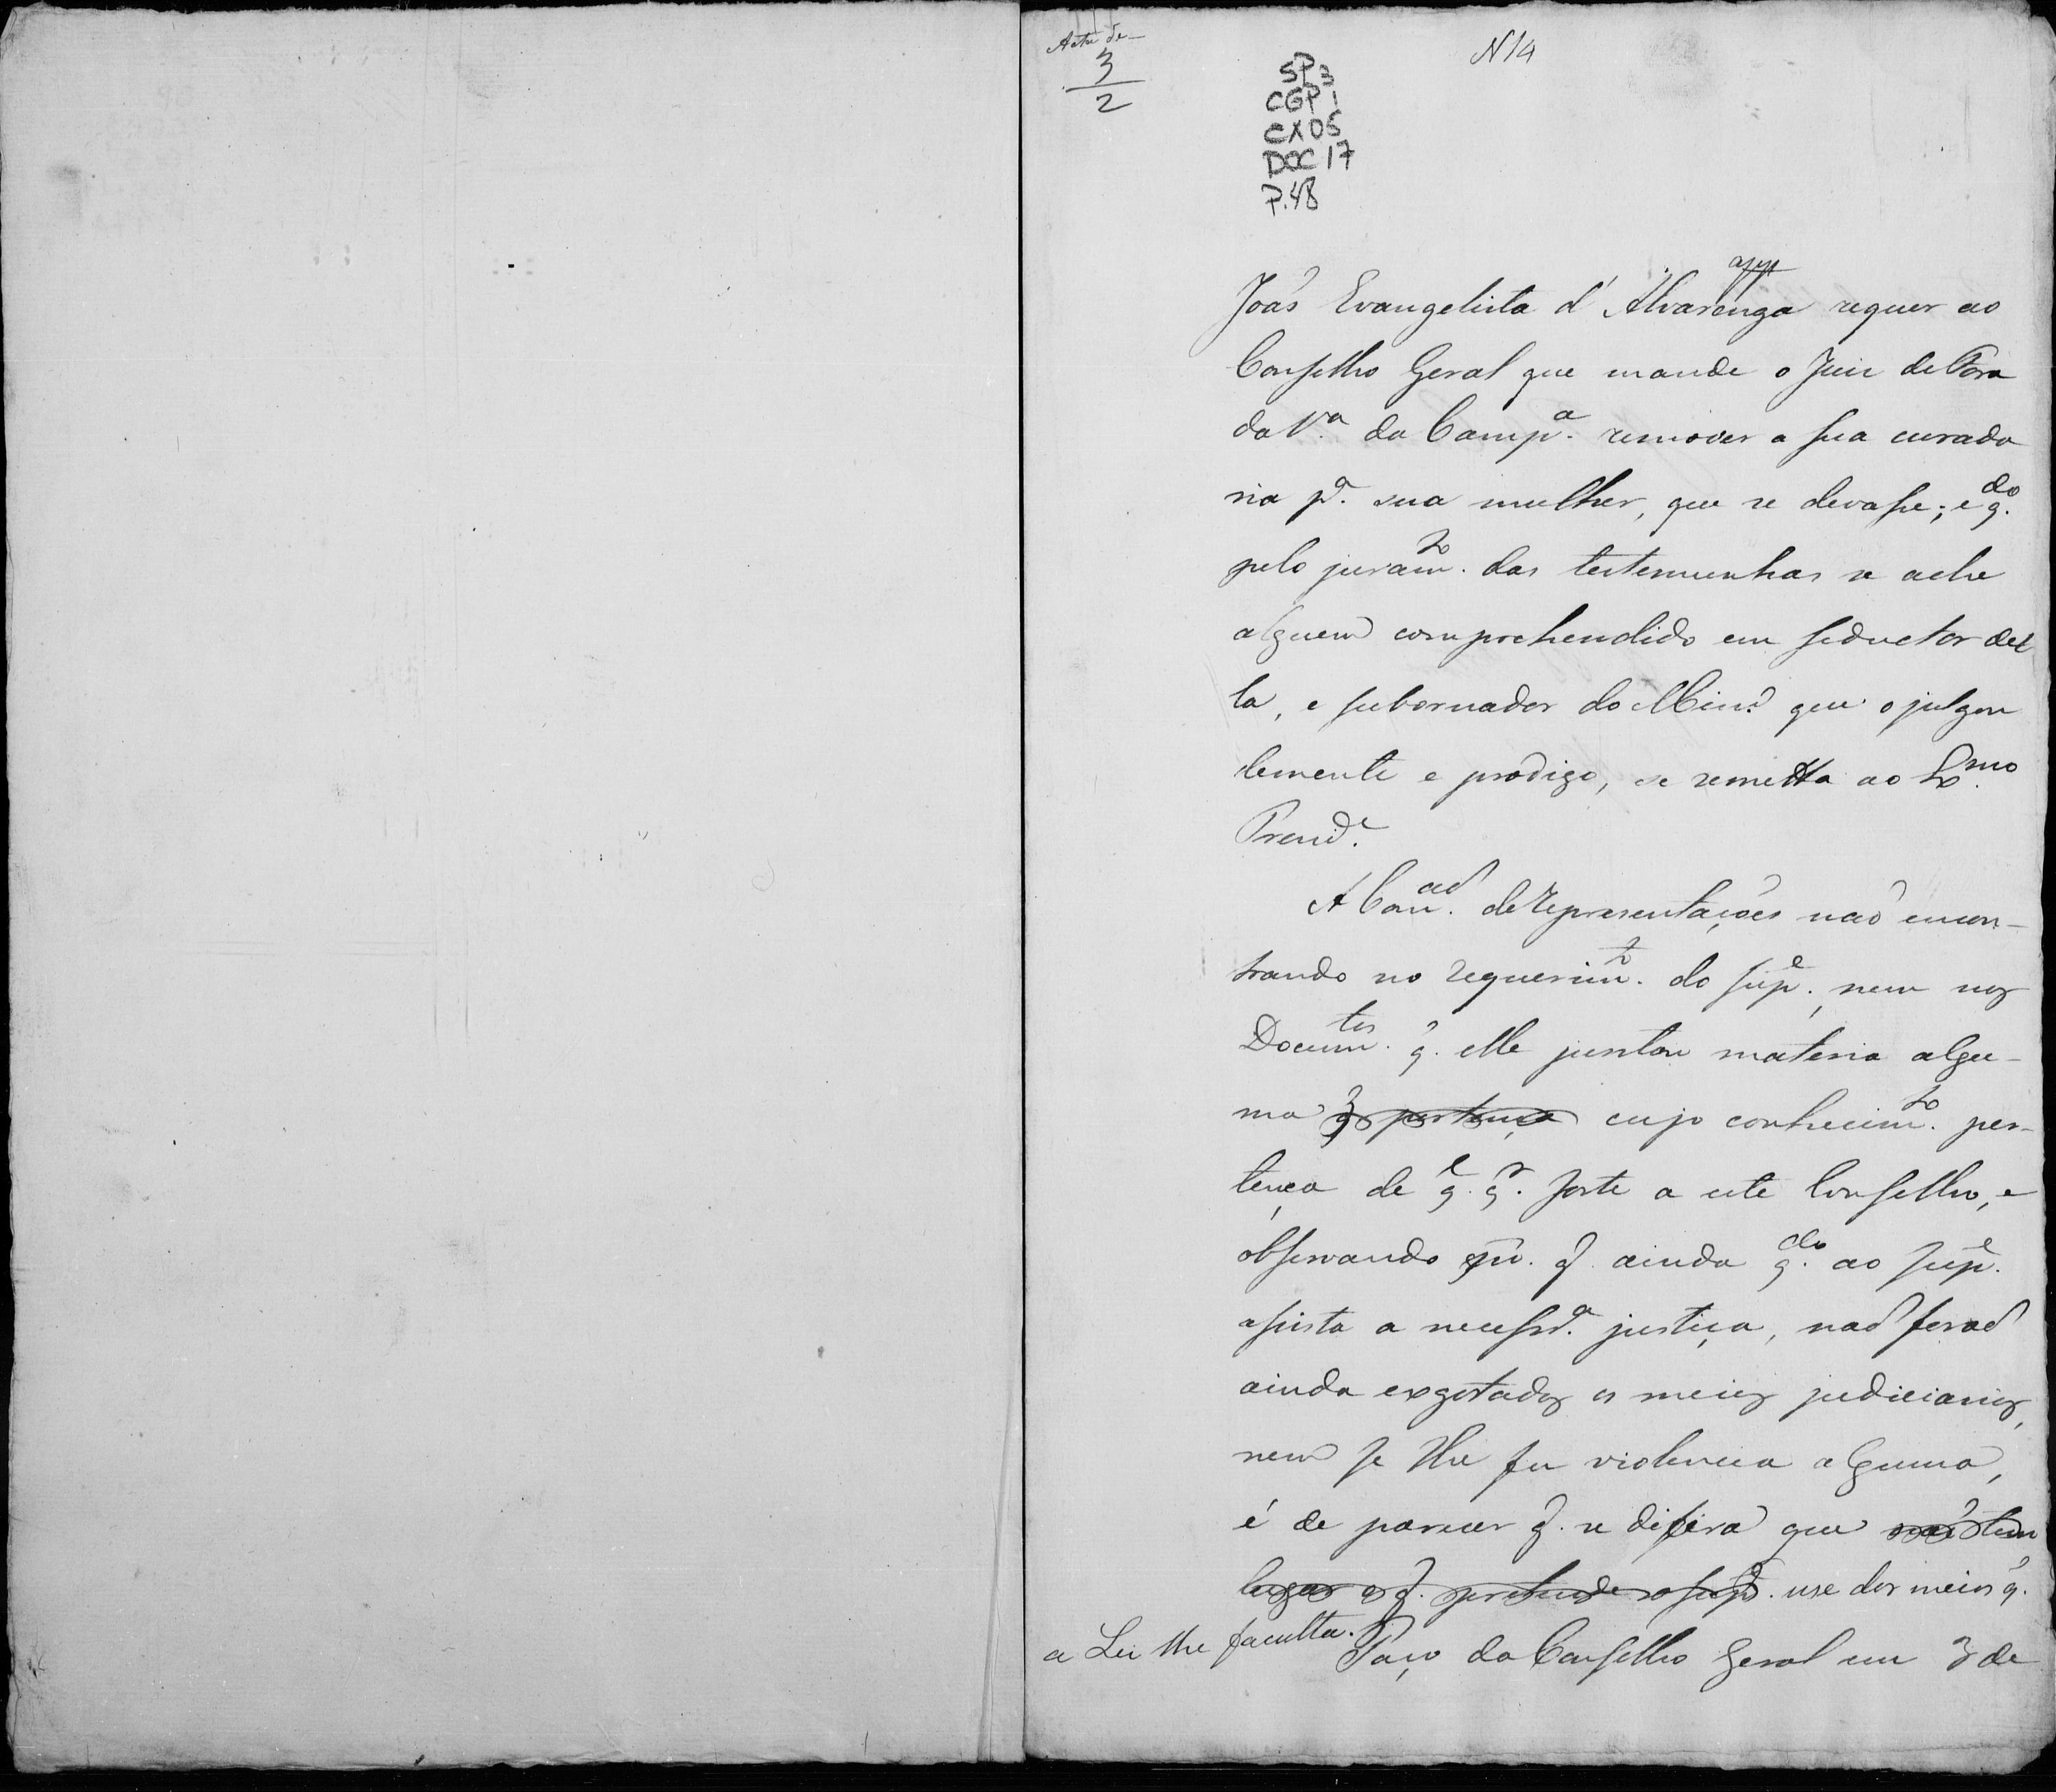 Acta de
3
2
N 14
SP 3
CGP 1
CX 05
DOC 17
P. 48
João Evangelista d'Alvarenga requer ao
Conselho Geral que mande o Juiz de Fora
da V.ª da Camp.ª remover a sua curado
ria p.ª sua mulher, que se devasse; e q.do
pelo juram.to das testemunhas se ache
alguem comprehendido em seductor del
la, e subornador do Min.º que o julgou
demente e prodigo, se remetta ao Ex.mo
Presid.e
A Com.ão de representações não encon-
trando no requerim.to do sup.e, nem nos
Docum.tos q. elle juntou materia algu-
ma q. pertença cujo conhecim.to per-
tença de q.l q.r sorte a este Conselho, e
observando q. ainda q.do ao sup.e
assista a necessr.ª justiça, não forão
ainda exgotados os meios judiciarios,
nem se lhe fez violencia alguma,
é de parecer q. se difira que não tem
lugar o q. pretende o sup.e use dos meios q.
a Lei lhe faculta. Paço do Conselho Geral em 3 de